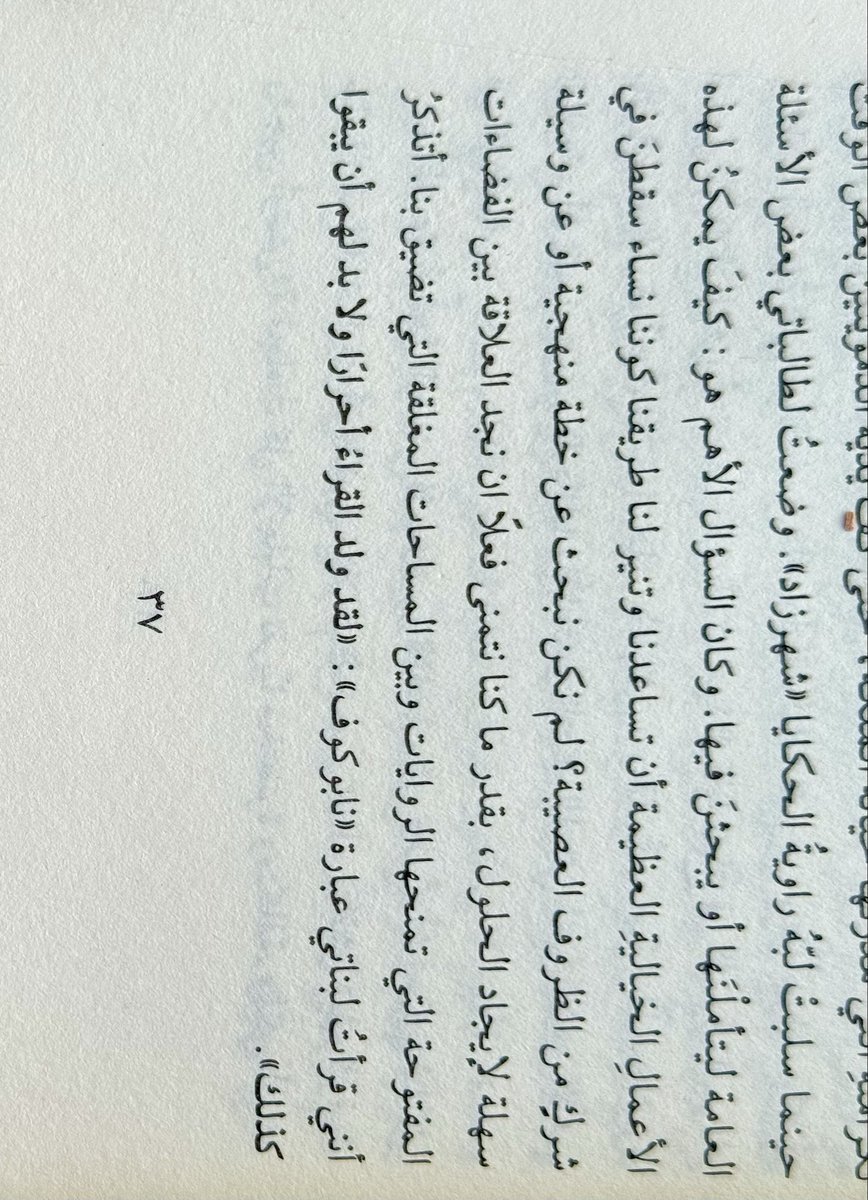 يديه الدمويتين بعض الوقت
حينما سلبتْ لبّهُ راويةُ الحكايا «شهرزاد». وضعتُ لطالباتي بعض الأسئلة
العامة ليتأملْنَها أو يبحثنَ فيها. وكان السؤال الأهم هو: كيفَ يمكنُ لهذه
الأعمالِ الخياليةِ العظيمة أن تساعدنا وتنير لنا طريقنا كوننا نساء سقطنَ في
شركِ من الظروف العصيبة؟ لم نكن نبحث عن خطة منهجية أو عن وسيلة
سهلة لإيجاد الحلول، بقدر ما كنا نتمنى فعلًا ان نجد العلاقة بين الفضاءات
المفتوحة التي تمنحها الروايات وبين المساحات المغلقة التي تضيق بنا. أتذكرُ
أنني قرأتُ لبناتي عبارة «نابوكوف»: «لقد ولد القراءُ أحرارًا ولا بد لهم أن يبقوا
كذلك».
٣٧